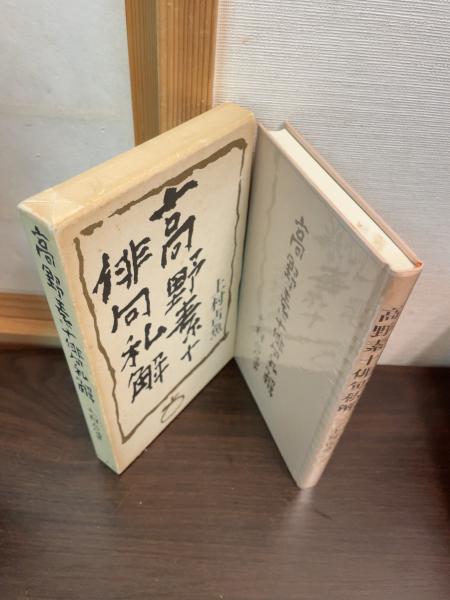 高野素十俳句私解
高野素十
俳句私解
上村占魚
高野素十俳句私解
高野素十俳句私解